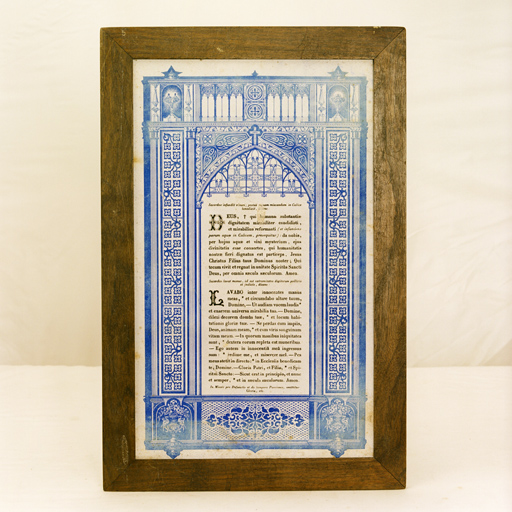 Sacerdos infundit vinum,
DEUS, † qui humanæ substantiæ
dignitatem mirabiliter condidisti,
et mirabilius reformasti
da nobis,
per hujus aquæ et vini mysterium, ejus
divinitatis esse consortes, qui humanitatis
nostræ fieri dignatus est particeps, Jesus
Christus Filius tuus Dominus noster; Qui
tecum vivit et regnat in unitate Spiritûs Sancti
Deus, per omnia sæcula sæculorum. Amen.
Sacerdos lavat manus,
LAVABO inter innocentes manus
meas, * et circumdabo altare tuum,
Domine.— Ut audiam vocem laudis *
et enarrem universa mirabilia tua.— Domine,
dilexi decorem domûs tuæ, * et locum habi-
tationis gloriæ tuæ.— Ne perdas cum impiis,
Deus, animam meam, * et cum viris sanguinum
vitam meam.— In quorum manibus iniquitates
sunt, * dextera eorum repleta est muneribus.
— Ego autem in innocentiâ meâ ingressus
sum: * redime me, et miserere meî.— Pes
meus stetit in directo: * in Ecclesiis benedicam
te, Domine.— Gloria Patri, et Filio, * et Spi-
ritui Sancto.— Sicut erat in principio, et nunc
et semper, * et in sæcula sæculorum. Amen.